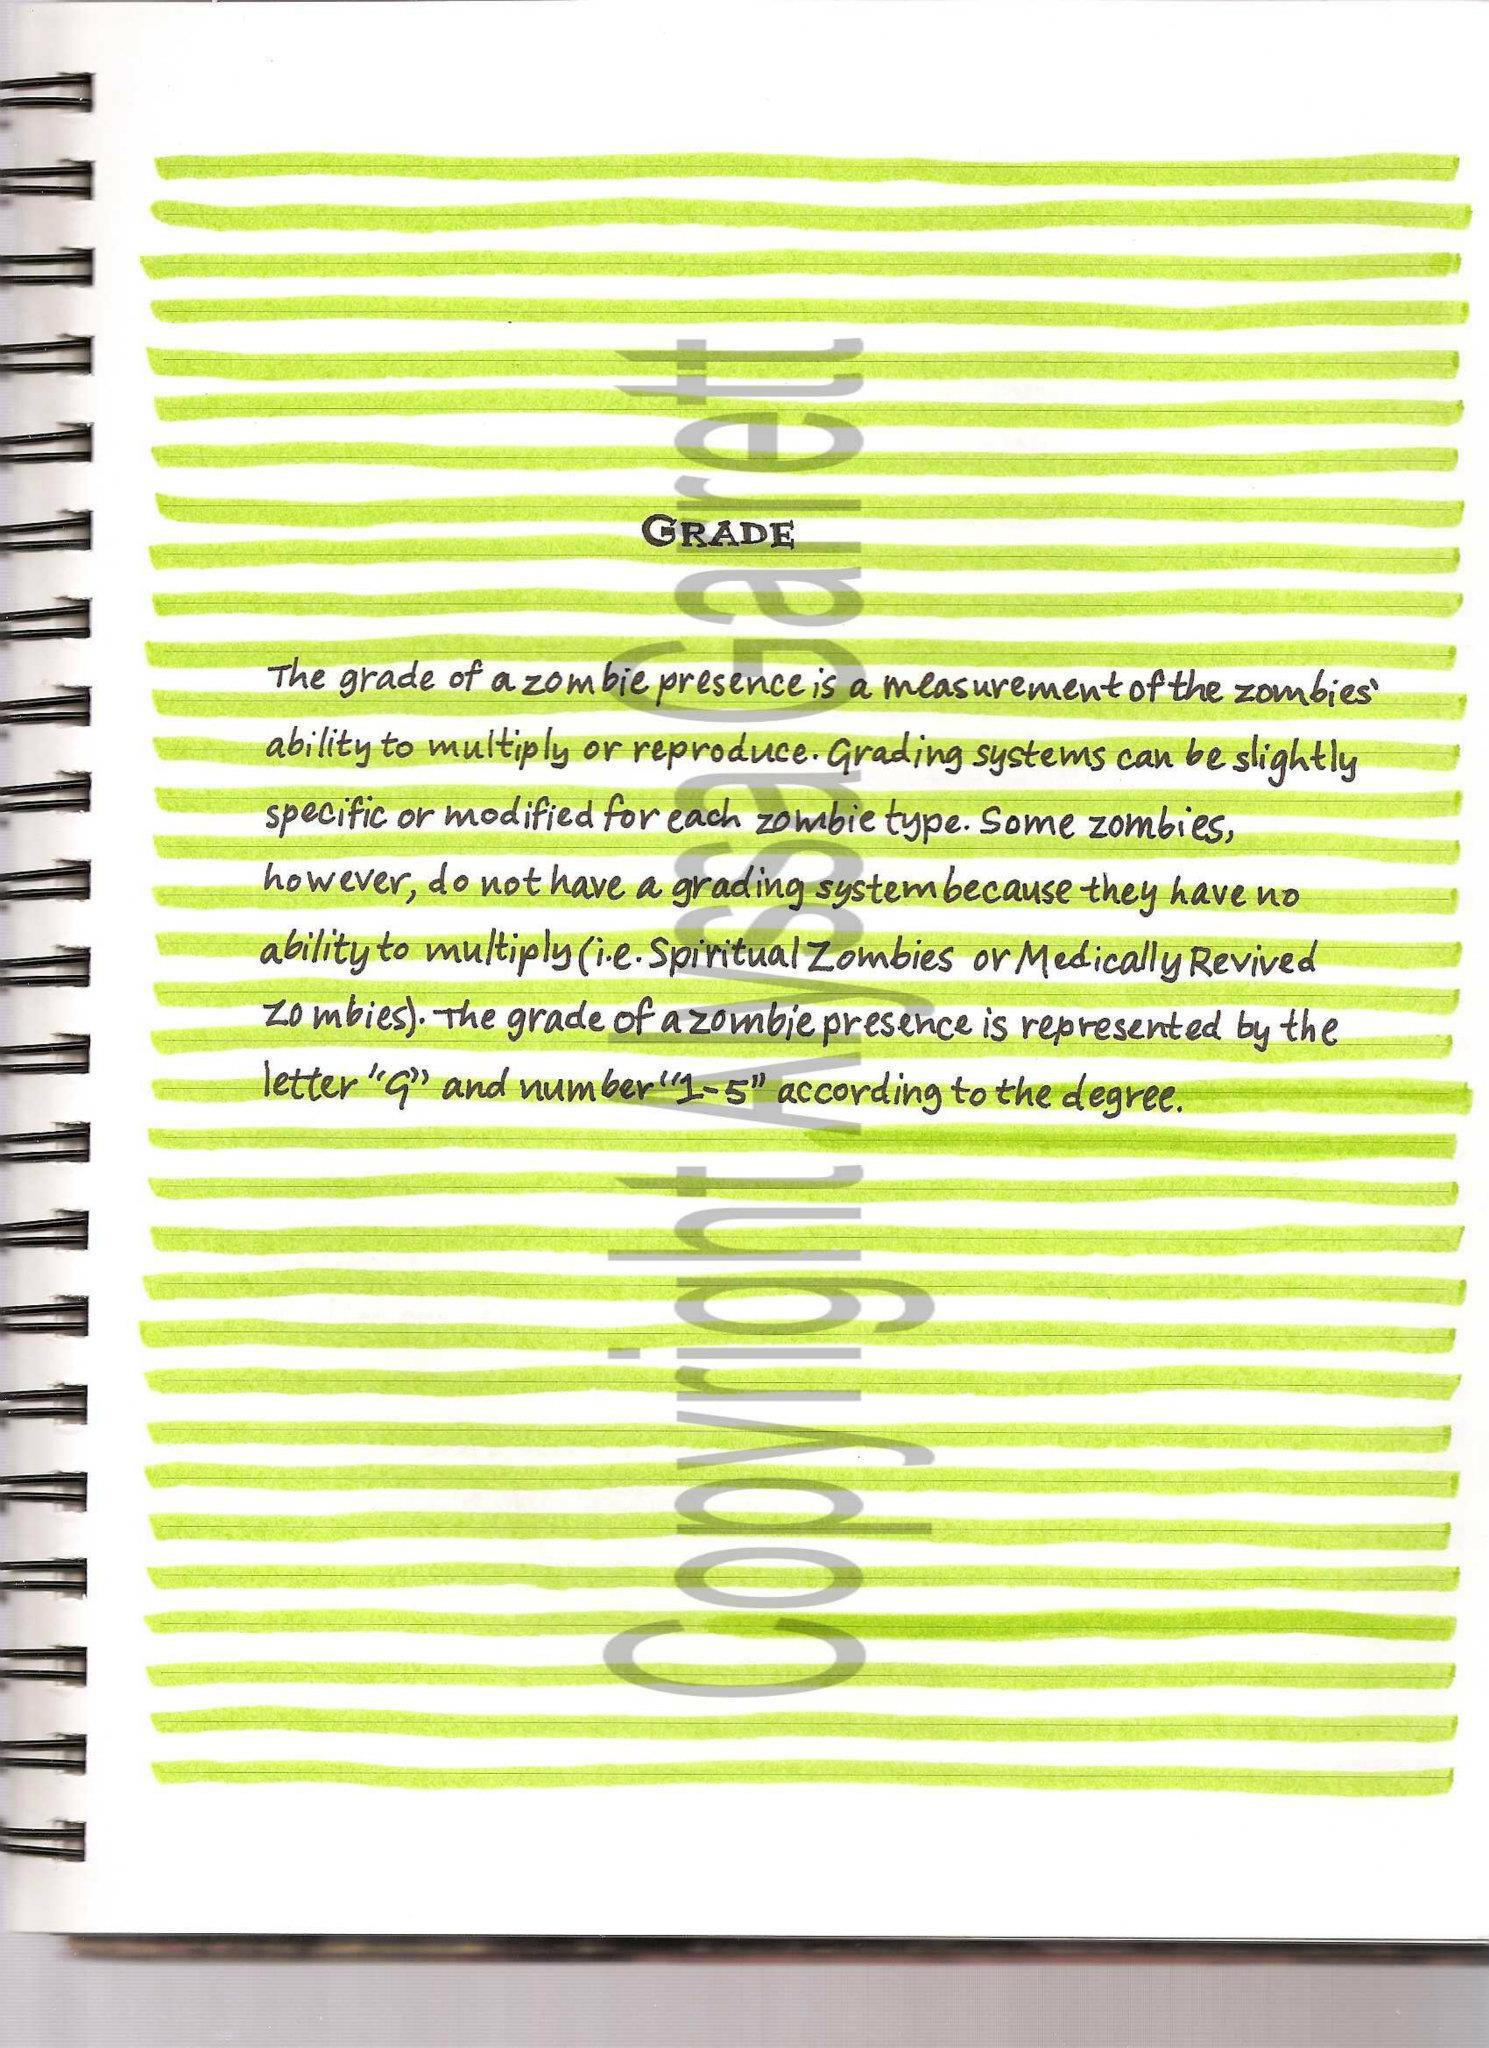 GRADE
The grade of a zombie presence is a measurement of the zombies'
ability to multiply or reproduce. Grading systems can be slightly
specific or modified for each zombie type. Some zombies,
however, do not have a grading system because they have no
ability to multiply (i.e. Spiritual Zombies or Medically Revived
Zombies). The grade of a zombie presence is represented by the
letter "G" and number "1-5" according to the degree.
Copyright Alyssa Garrett